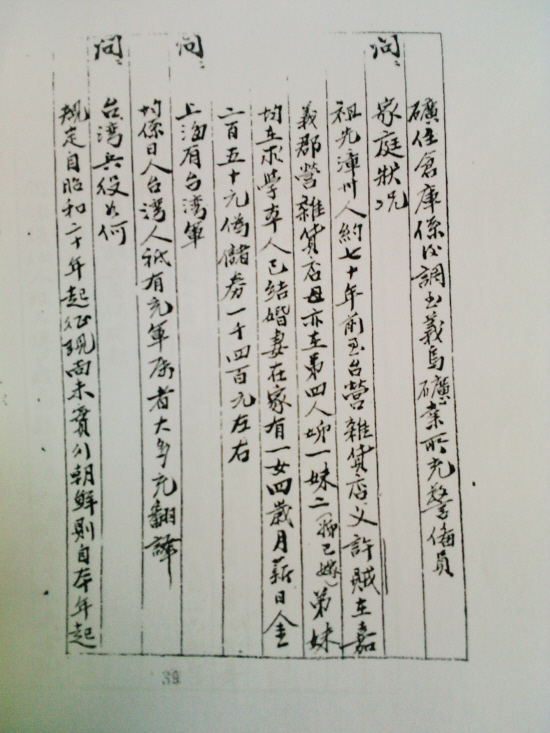 礦住倉庫係後調至義烏礦業所充警備員
問、家庭狀況
祖先漳州人約七十年前至台營雜貨店父許賊在嘉
義郡營雜貨店母亦在弟四人姊一妹二(姊已嫁)弟妹
均在求學本人已結婚妻在家有一女四歲月薪日金
二百五十元偽儲券一千四百元左右
問、上海有台湾軍
均係日人台湾人祇有充軍屬者大多充翻譯
問、台湾兵役如何
規定自昭和二十年起征現尚未實行朝鮮則自本年起
39